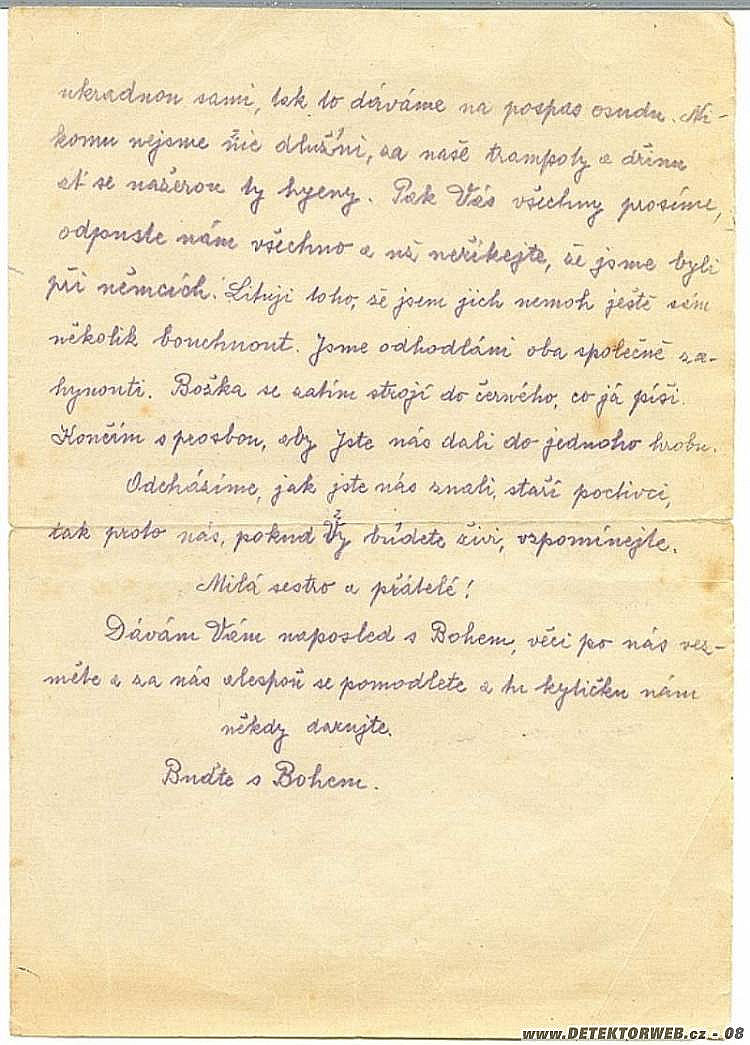 ukradnou sami, tak to dáváme na pospas osudu. Ni-
komu nejsme nic dlužni, za naše trampoty a dřinu
ať se nažerou ty hyeny. Pak Vás všechny prosíme,
odpuste nám všechno a už neříkejte, že jsme byli
při němcích. Lituji toho, že jsem jich nemoh ještě sám
několik bouchnout. Jsme odhodláni oba společně za-
hynouti. Božka se zatím strojí do černého, co já píši.
Končím s prosbou, aby Jste nás dali do jednoho hrobu.
Odcházíme, jak jste nás znali, staří poctivci,
tak proto nás, pokud Vy budete živi, vzpomínejte.
Milá sestro a přátelé!
Dávám Vám naposled s Bohem, věci po nás vez-
měte a za nás alespoň se pomodlete a tu kytičku nám
někdy darujte.
Buďte s Bohem.
www.DETEKTORWEB.cz - 08